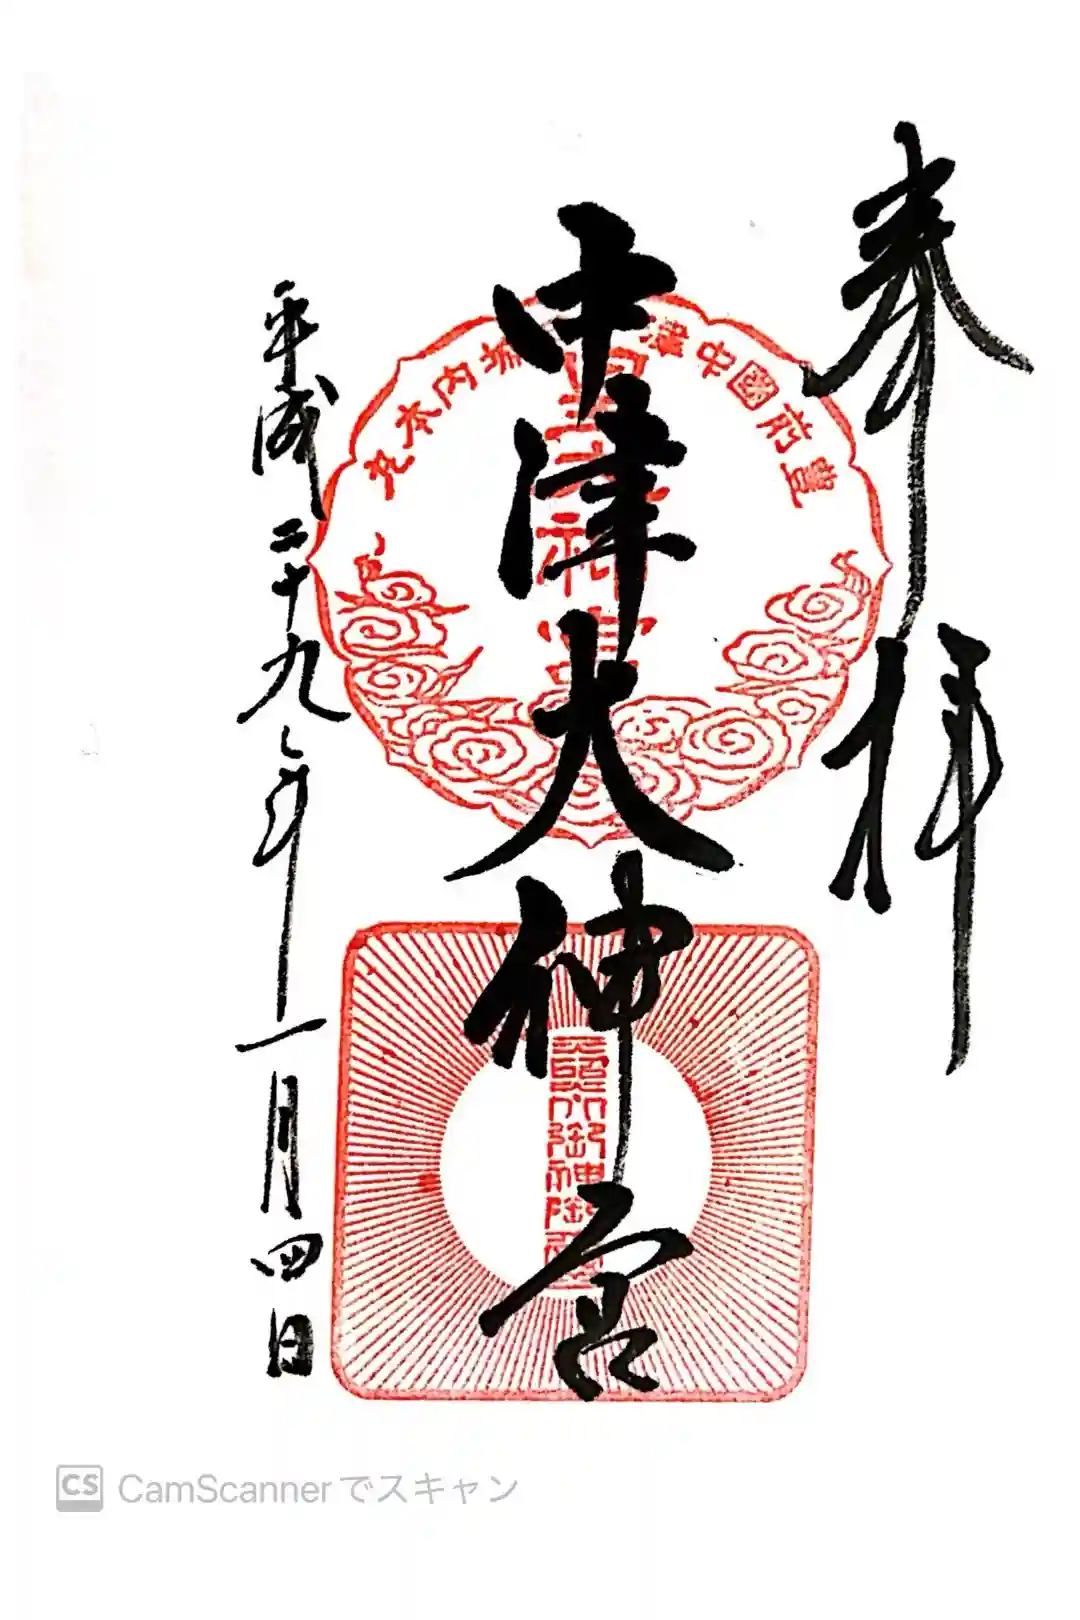 奉拝
豊前國中津
内本丸
中津大神宮
平成二十九年一月四日
CS CamScannerでスキャン